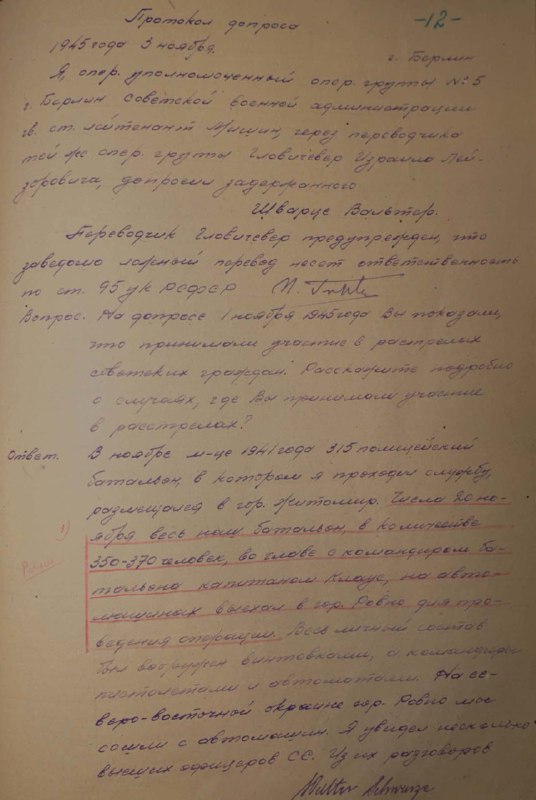 -12-
Протокол допроса
1945 года 3 ноября.
г. Берлин
Я, опер. уполномоченный опер. группы № 5
г. Берлин Советской военной администрации
гв. ст. лейтенант Мишин, через переводчика
той же опер. группы Гловичевер Израиля Лей-
зоровича, допросил задержанного
Шварце Вальтер.
Переводчик Гловичевер предупрежден, что
заведомо ложный перевод несет ответственность
по ст. 95 УК РСФСР
Вопрос. На допросе 1 ноября 1945 года Вы показали,
что принимали участие в расстрелах
советских граждан. Расскажите подробно
о случаях, где Вы принимали участие
в расстрелах?
Ответ. В ноябре м-це 1941 года 315 полицейский
батальон, в котором я проходил службу,
размещался в гор. Житомир. Числа 20 но-
ября весь наш батальон, в количестве
350-370 человек, во главе с командиром ба-
тальона капитаном Клаус, на авто-
машинах выехал в гор. Ровно для про-
ведения операции. Весь личный состав
был вооружен винтовками, а командиры
пистолетами и автоматами. На се-
веро-восточной окраине гор. Ровно мы
сошли с автомашин. Я увидел несколько
высших офицеров СС. Из их разговоров
Walter Schwarze